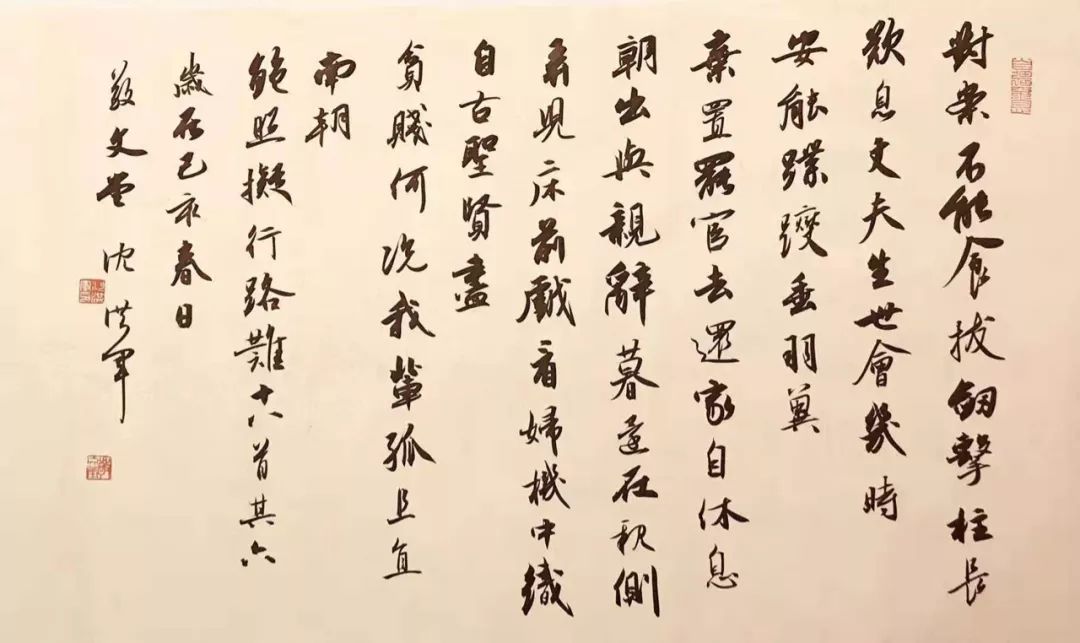 對案不能食拔劒擊柱長
歎息丈夫生世會幾時
安能蹀躞垂羽翼
棄置罷官去還家自休息
朝出與親辭暮還在親側
弄兒床前戲看婦機中織
自古聖賢盡
貧賤何況我輩孤且直
南朝
鮑照擬行路難十八首其六
歲在己亥春日
敬文堂 沈洪軍